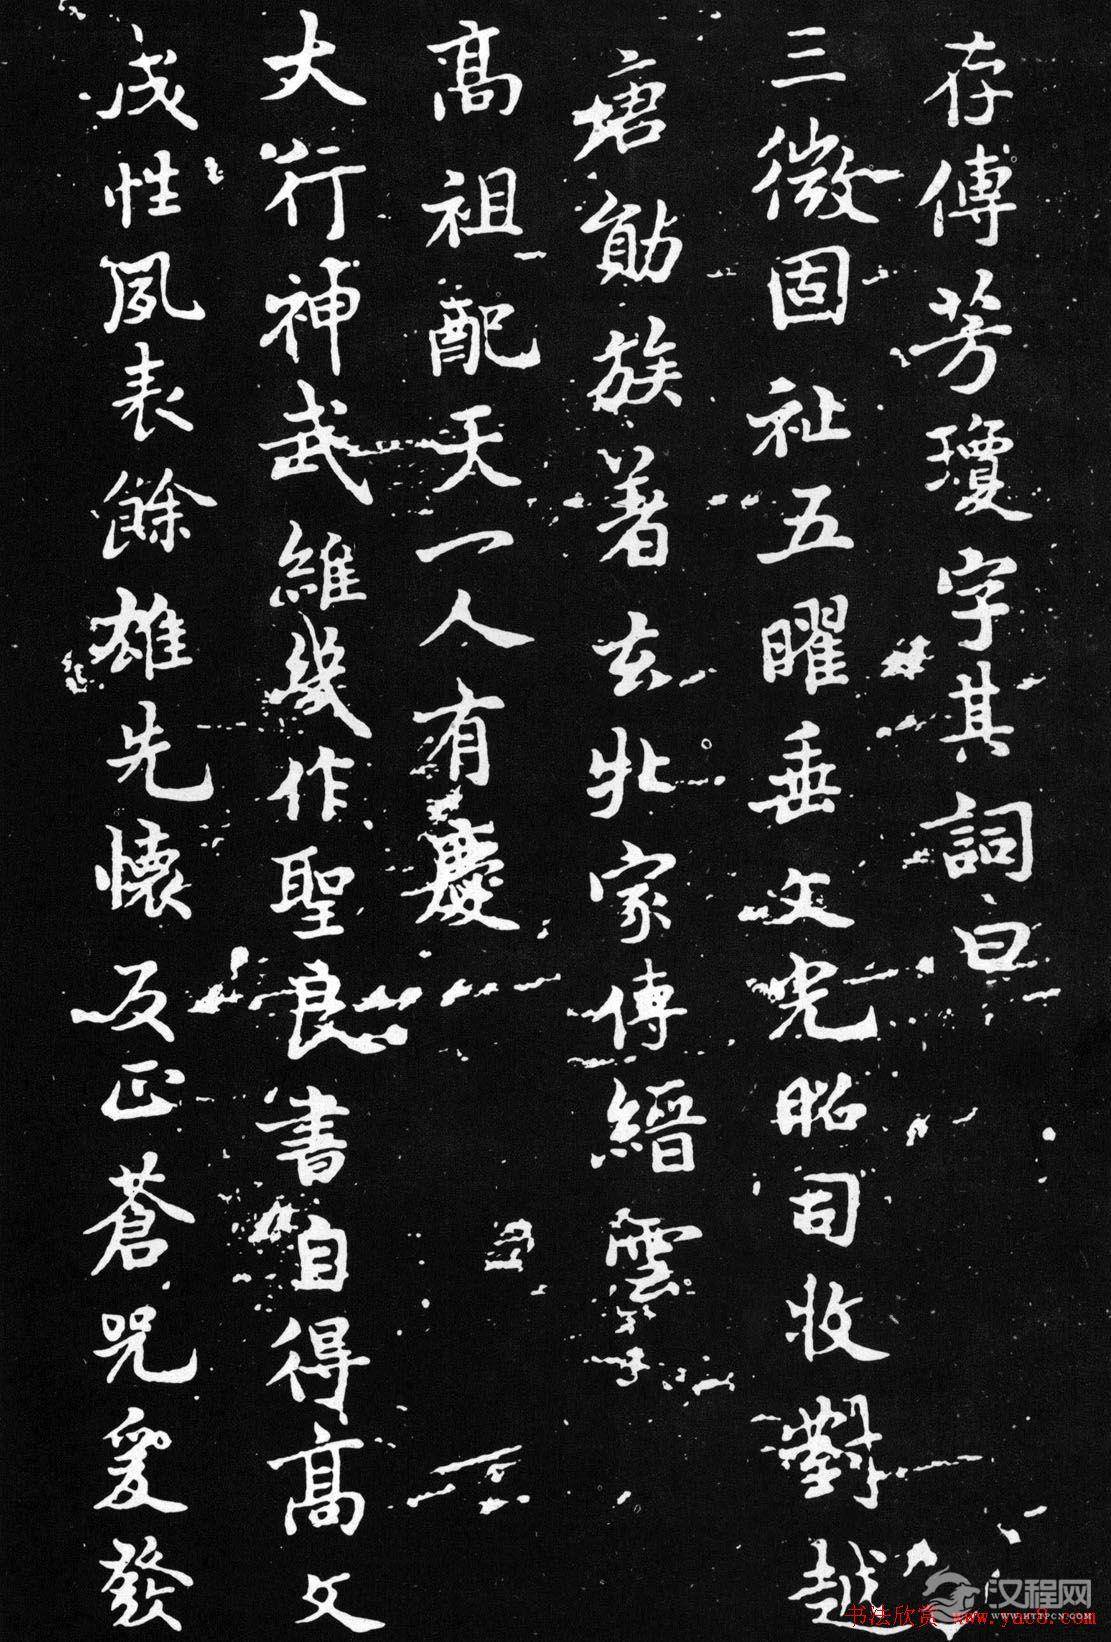 存傳芳瓊字其詞曰
三微固祉五曜垂文光昭司牧對越
唐勛族著玄牝家傳縉雲
高祖配天一人有慶
大行神武維幾作聖良書自得高文
成性夙表餘雄先懷反正蒼兕爰發
汉程网
WWW.HTTPCN.COM
书法欣赏 www.yac8.com